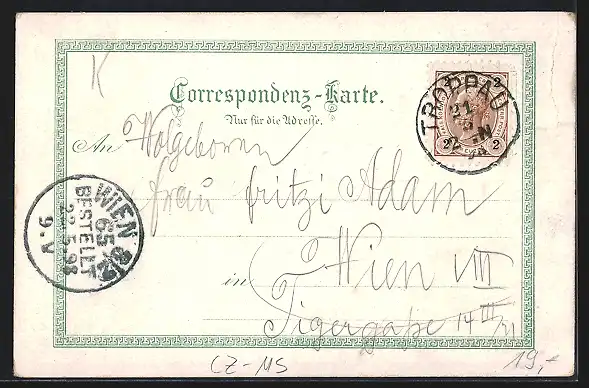 K
Correspondenz-Karte.
Nur für die Adresse.
2 2
TROPPAU
21
5
98
An Wolgeboren
Frau Fritzi Adam
WIEN 8/2
65
BESTELLT
22.5.98
9.V
in Wien VIII
Tigergaße 14 III/21
CZ-MS
19,-